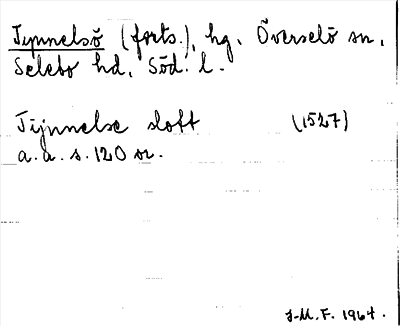 Tynnelsö (forts.), hg, Överselö sn,
Selebo hd, Söd. l.
Tijnnelse slott (1527)
a.a.s. 120 or.
J-M.F. 1964.